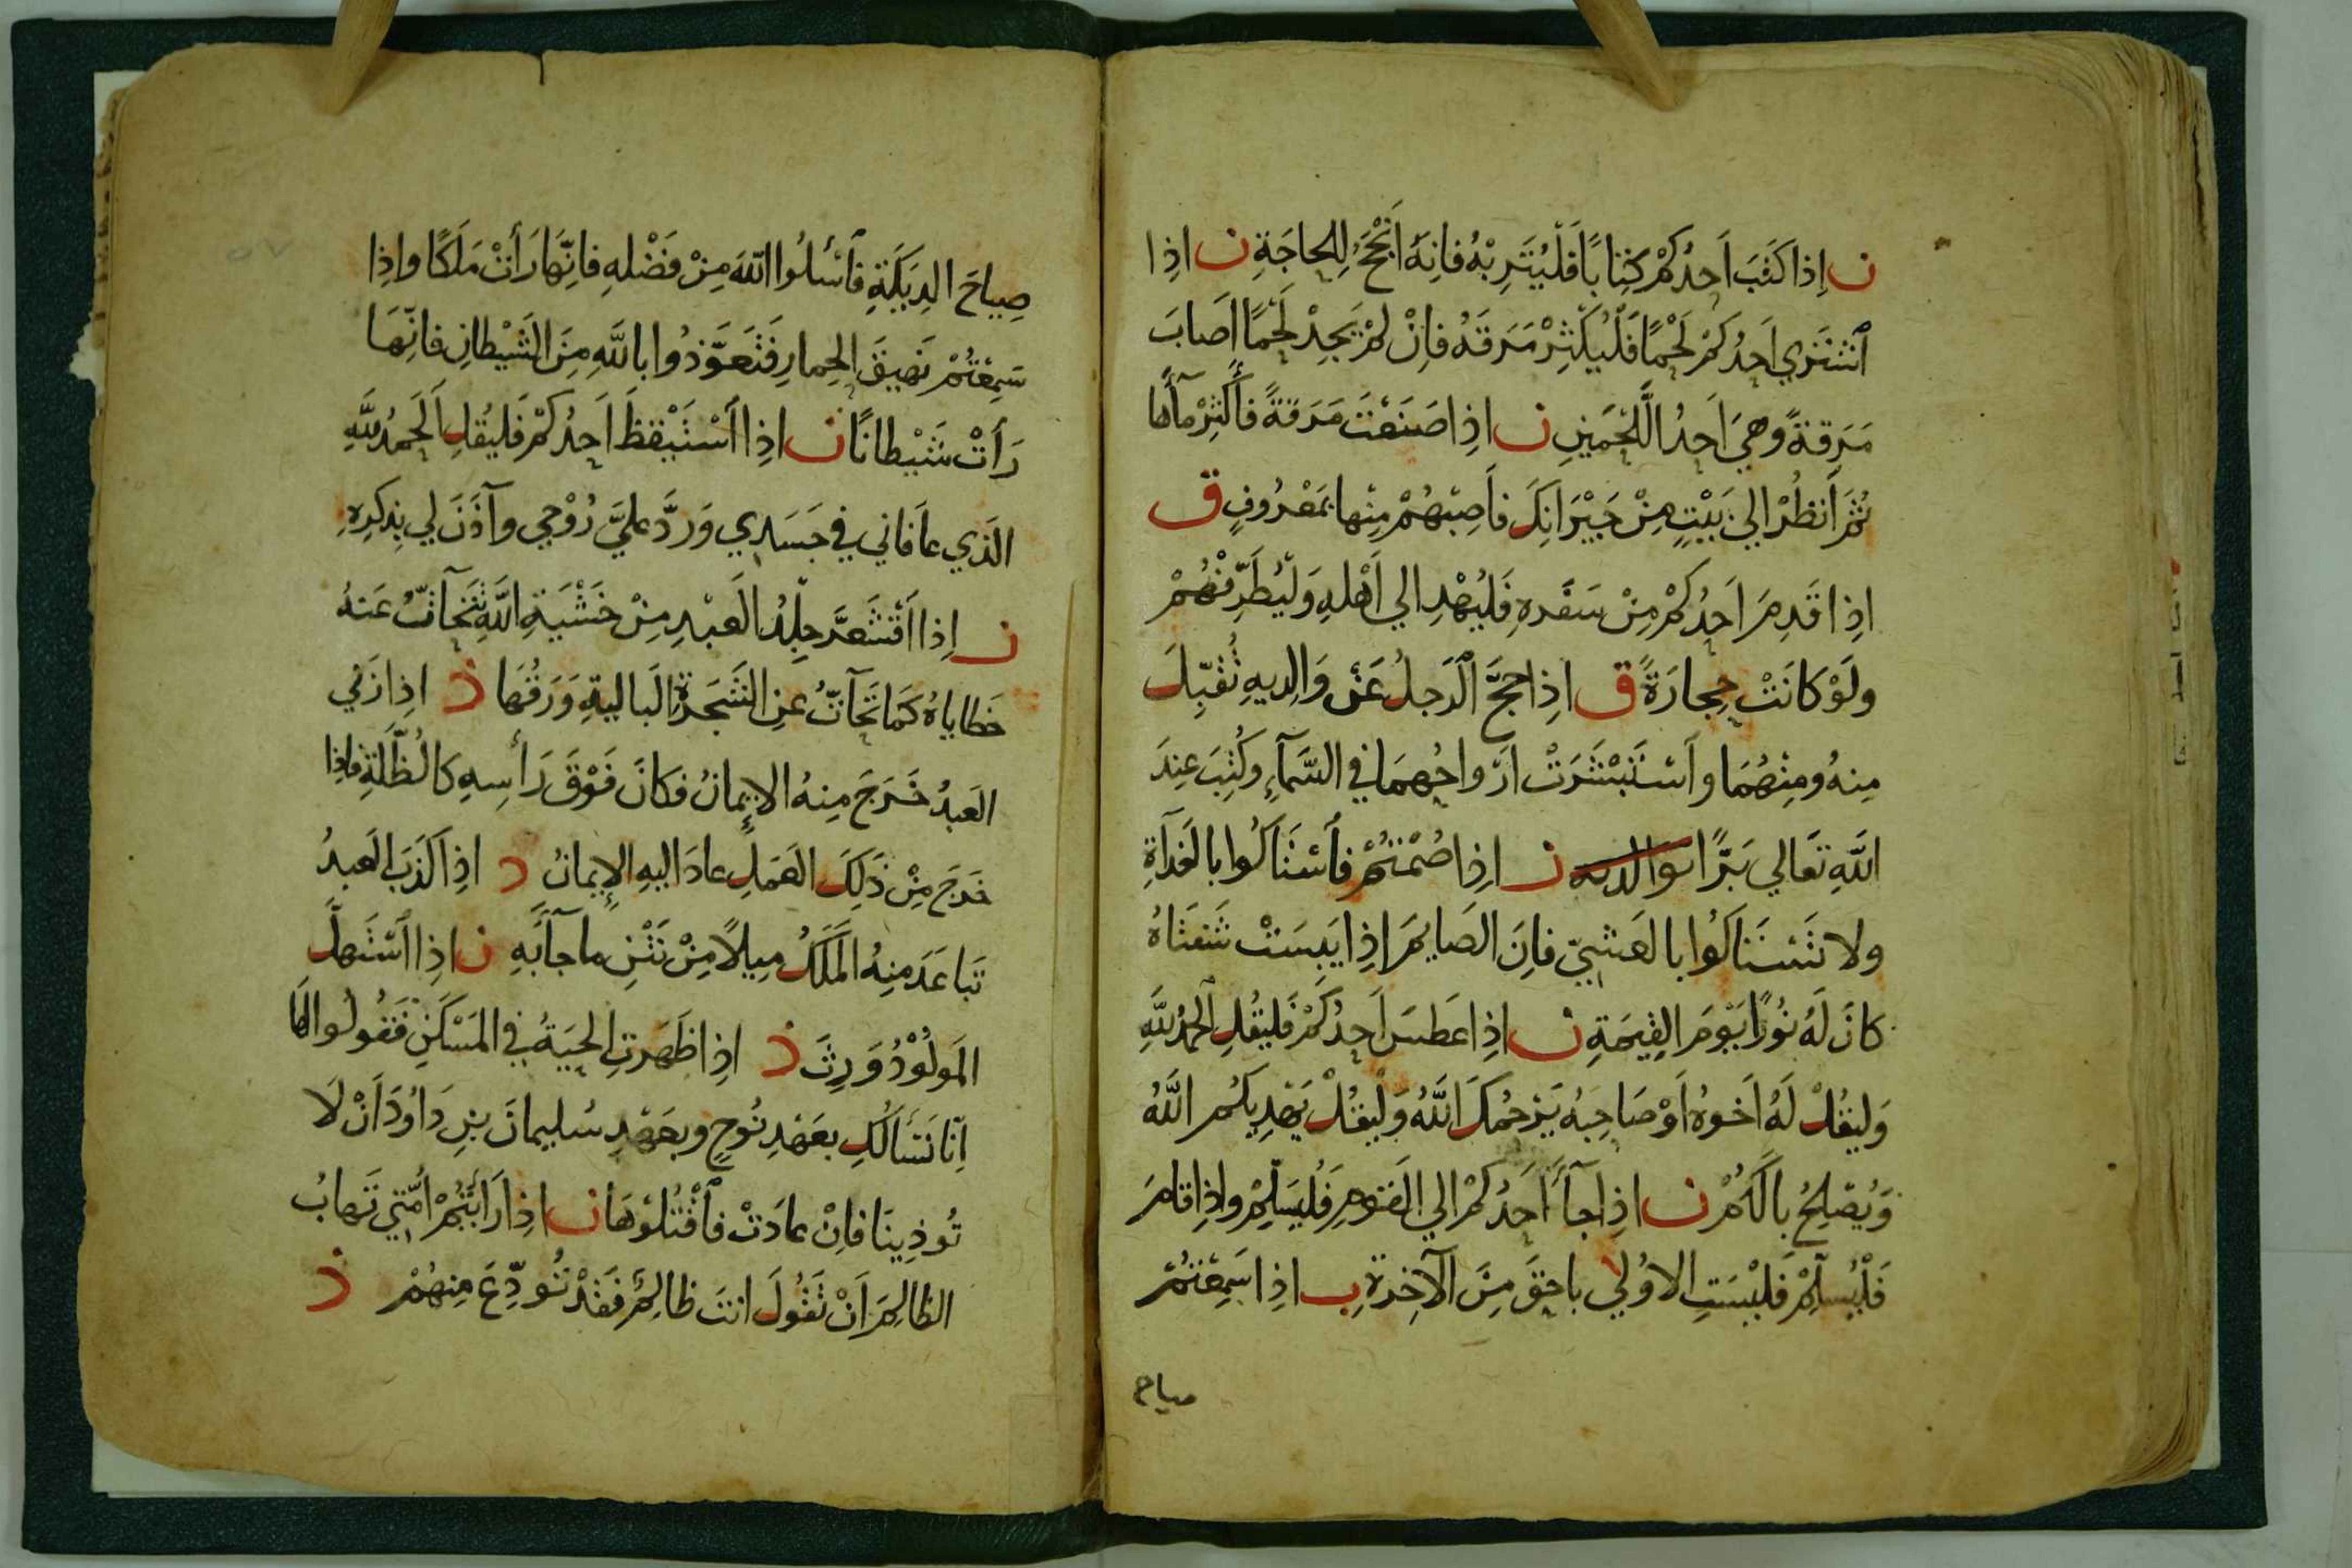 ن اِذا كَتَبَ اَحدُكمْ كِتابًا فَلْيُتَرِبْهُ فانِهُ اَنْجَحُ لِلحاجَةِ ن اذِا
اَشتَري اَحدُكمْ لَحْمًا فَلْيُكْثِرْ مَرَقَهُ فاِنْ لمْ يَجِدْ لَحْمًا اَصابَ
مَرَقةً وهيَ اَحدُ اللَّحْمَينِ ن اذِا صَنَعْتَ مَرَقةً فأَكْثِرْ مآءَها
ثُمَّ اَنظُرْ الي بَيْتٍ مِنْ جَيْرَانِكَ فأَصِبْهُمْ مِنْها بمَعْرُوفٍ ق
اذِا قَدِمَ اَحدُكمْ مِنْ سَفَرهِ فَليُهْدِ الي اَهْلهِ وَلْيُطَرِّفْهُمْ
ولَوْ كانَتْ حِجارَةً ق اذِا حَجَّ الَرَجلُ عَنْ وَالِديهِ تُقبِّلَ
مِنهُ ومِنْهُمَا واَسْتَبْشَرَتْ ارَواحُهمَا في السَّمآءِ وكُتِبَ عِندَ
اللَّهِ تَعَالي بَرًّا بوالديه ن اذِا صُمْتمُ فأسْتَاكُوا بالغَدَآةِ
ولا تَسْتَاكُوا بالعَشيِّ فاِنَ الصَايمَ اذِا يَبِسَتْ شَفتَاهُ
كانَ لَهُ نُورًا يَوْمَ القِيمَةِ ن اذِا عَطسَ اَحدُكمْ فَليقُلِ الحَمدُ للَّهِ
وَليقُلْ لَهُ اَخوهُ اَوْ صَاحِبهُ يَرْحمُكَ اللَّهُ وَلْيقُلْ يَهْدِيكُم اللَّهُ
وَيُصْلِحُ بالَكُمْ ن اذِا جآءَ اَحَدُكمْ الي القَومِ فَلْيسَلِمْ واذِا قامَ
فَلْيُسلِّمْ فَليْسَتِ الاوُلي باحقَ مِنَ الآخِرةِ ب اذِا سَمِعْتمُ
صياح
صِياحَ الدِيَكَةِ فأسْئلُوا اللهَ مِنْ فَضْلهِ فانِّهَا رَأتْ مَلَكًا واِذا
سَمِعْتُمْ نَهيقَ الحِمارِ فَتَعوَّذُوا باللَّهِ مِنَ الشَيْطانِ فانِّهَا
رَأَتْ شَيْطانًا ن اذِا اَسْتَيْقظَ اَحدُكمْ فَليُقلِ اَلحمدُ للَّهِ
الذَي عاَفاني في جَسَدي وَردَّ عليَّ رُوْحي وآذَنَ لي بِذكرِهِ
ن اِذا اَقْشَعرَّ جِلْدُ العَبْدِ مِنْ خَشْيَةِ اللَّهِ تَحآتَّتْ عَنهُ
خَطاياهُ كَمَا تَحآتُّ عنِ الشَجَرةِ البَاليةِ وَرَقُهَا د اذِا زَني
العَبدُ خَرَجَ مِنهُ الاِيمانُ فكَانَ فَوْقَ رَأسِهِ كالظُّلَةِ فاذِا
خَرجَ مِنْ ذَلِكَ العَمَلِ عادَ اليهِ الاِيمانُ د اذِا كَذَبَ العَبدُ
تَباعَدَ مِنهُ المَلَكُ مِيلًا مِنْ نَتْنِ ما جآءَ بهِ ن اذِا اَسْتَهلَّ
المَولُوْدُ وَرِثَ د اذِا ظَهَرتِ الحَيَةُ في المَسْكنِ فَقُولُوا لَهَا
اِنّا نَسَأَلُكِ بعَهْدِ نُوحٍ وبعَهْدِ سُليمانَ بنِ دَاوُدَ اَنْ لَا
تُوذِينَا فاِنْ عادَتْ فأقْتُلوْهَا ن اذِا رَأَيْتمُ اُمّتي تَهابُ
الظالِمَ اَنْ تَقُولَ انتَ ظالِمٌ فَقدْ تُودِّعَ مِنهُمْ د